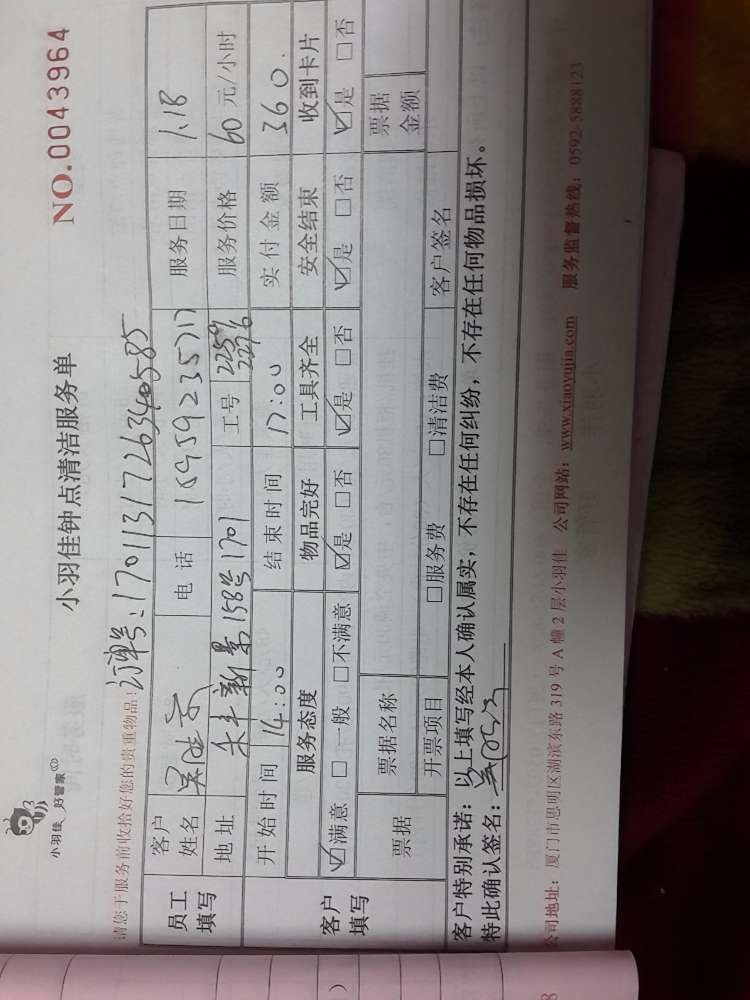 小羽佳 好管家
小羽佳钟点清洁服务单
NO.0043964
请您于服务前收拾好您的贵重物品!
订单号:17011317263
员工填写
客户姓名
电话
服务日期 1.18
地址 158号1701
工号
服务价格 60 元/小时
客户填写
开始时间 14:00
结束时间 17:00
实付金额 360.
服务态度 物品完好 工具齐全 安全结束 收到卡片
☑满意 □一般 □不满意 ☑是 □否 ☑是 □否 ☑是 □否 ☑是 □否
票据
票据名称
票据金额
开票项目 □服务费 □清洁费 客户签名
客户特别承诺:以上填写经本人确认属实,不存在任何纠纷,不存在任何物品损坏。
特此确认签名:
公司地址:厦门市思明区湖滨东路 319 号 A 幢 2 层小羽佳 公司网站:www.xiaoyujia.com 服务监督热线:0592-5888123